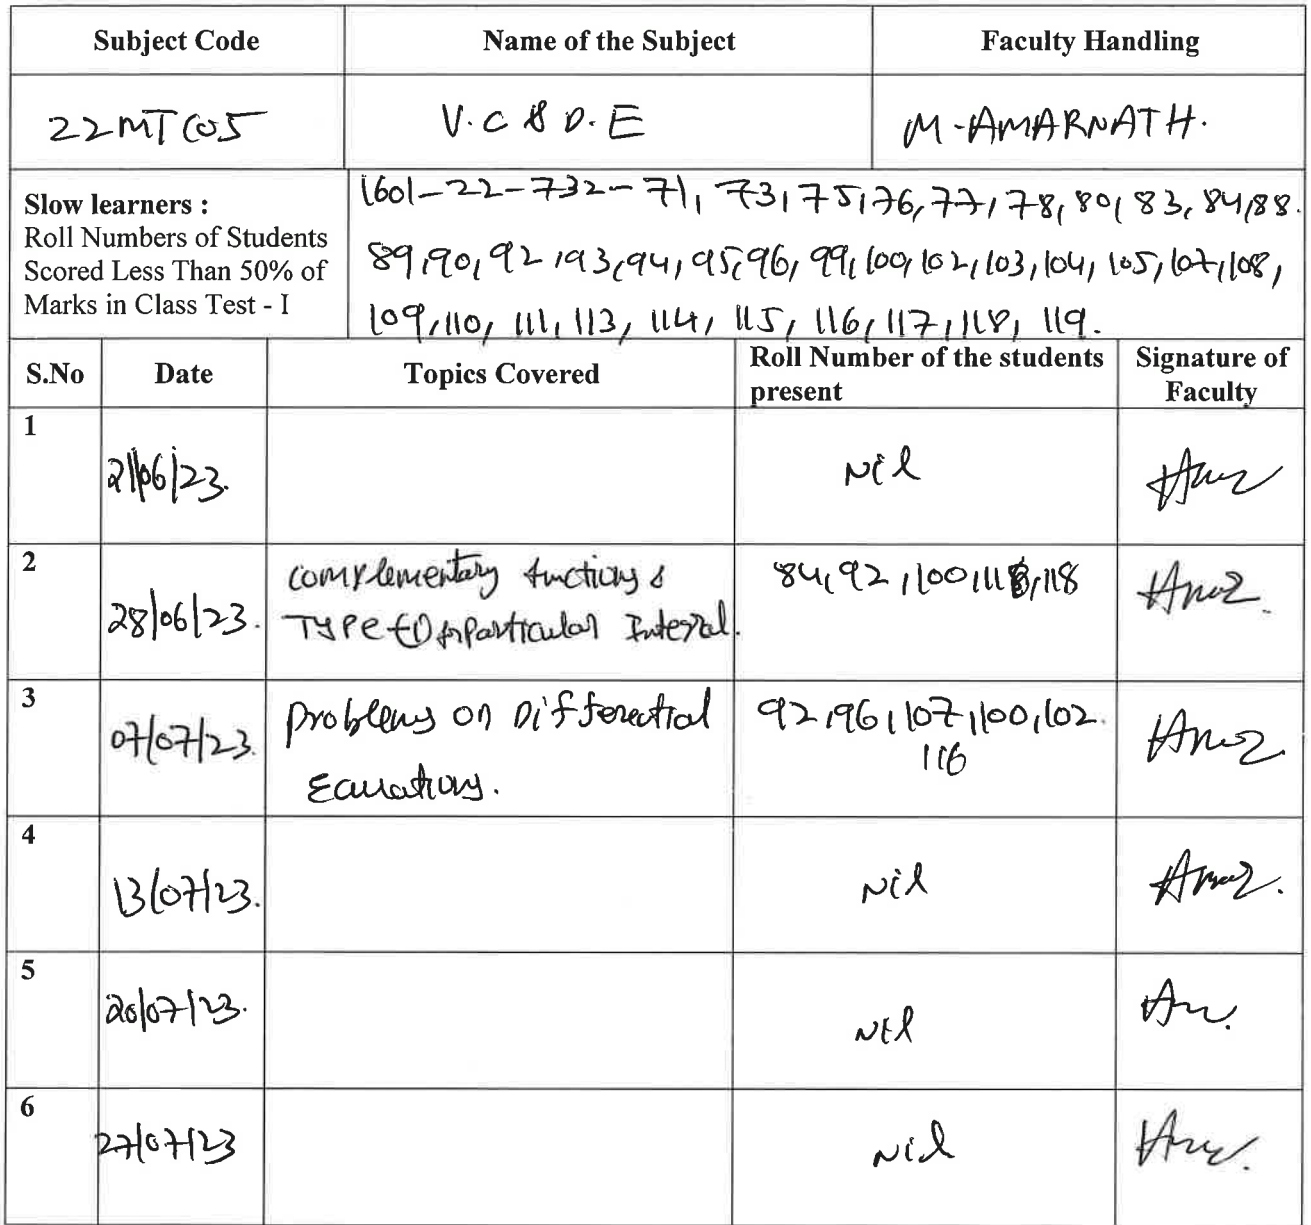 Subject Code Name of the Subject Faculty Handling
22MTC05 V.C & D.E M-AMARNATH.
Slow learners :
Roll Numbers of Students
Scored Less Than 50% of
Marks in Class Test - I
1601-22-732-71, 73, 75, 76, 77, 78, 80, 83, 84, 88.
89, 90, 92, 93, 94, 95, 96, 99, 100, 102, 103, 104, 105, 107, 108,
109, 110, 111, 113, 114, 115, 116, 117, 118, 119.
S.No Date Topics Covered Roll Number of the students present Signature of Faculty
1 21/06/23. Nil
2 28/06/23. complementary functions &
TYPE particular Integral. 84, 92, 100, 118
3 07/07/23. problems on Differential
Equations. 92, 96, 107, 100, 102.
116
4 13/07/23. Nil
5 20/07/23. Nil
6 27/07/23 Nil